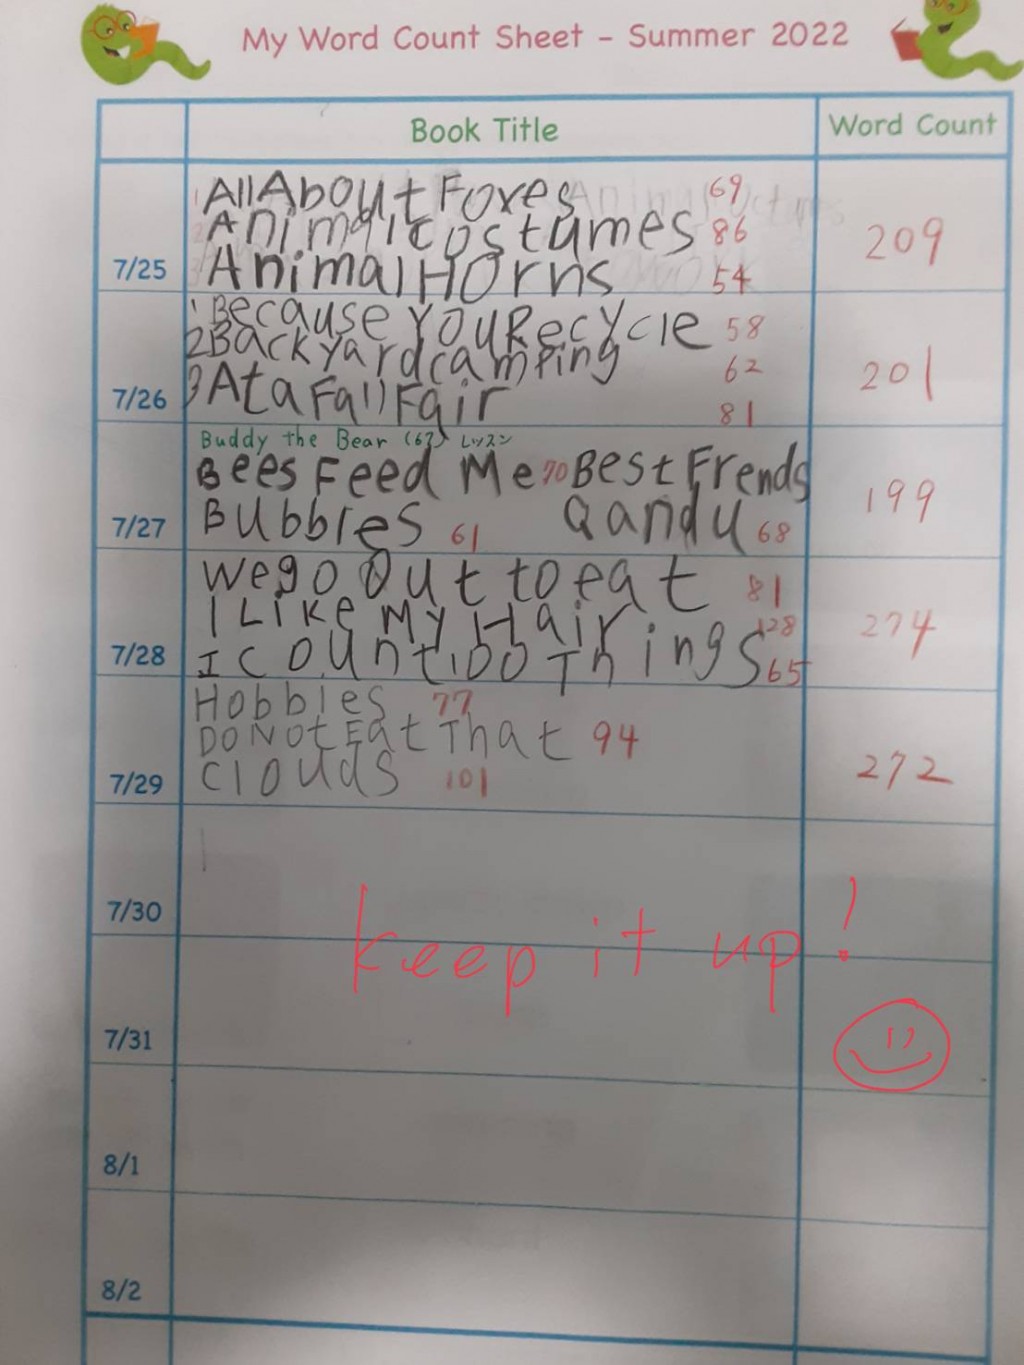 My Word Count Sheet - Summer 2022
Book Title
Word Count
All About Foxes 69
Animal costumes 86
Animal Horns 54
7/25
209
1 Because You Recycle 58
2 Backyard camping 62
3 At a Fall Fair 81
7/26
201
Buddy the Bear (67) レッスン
Bees Feed Me 70 Best Frends
Bubbles 61 Q and U 68
7/27
199
We go Out to eat 81
I Like My Hair 128
I Count 100 Things 65
7/28
274
Hobbies 77
DO Not Eat That 94
Clouds 101
7/29
272
7/30
keep it up!
7/31
8/1
8/2